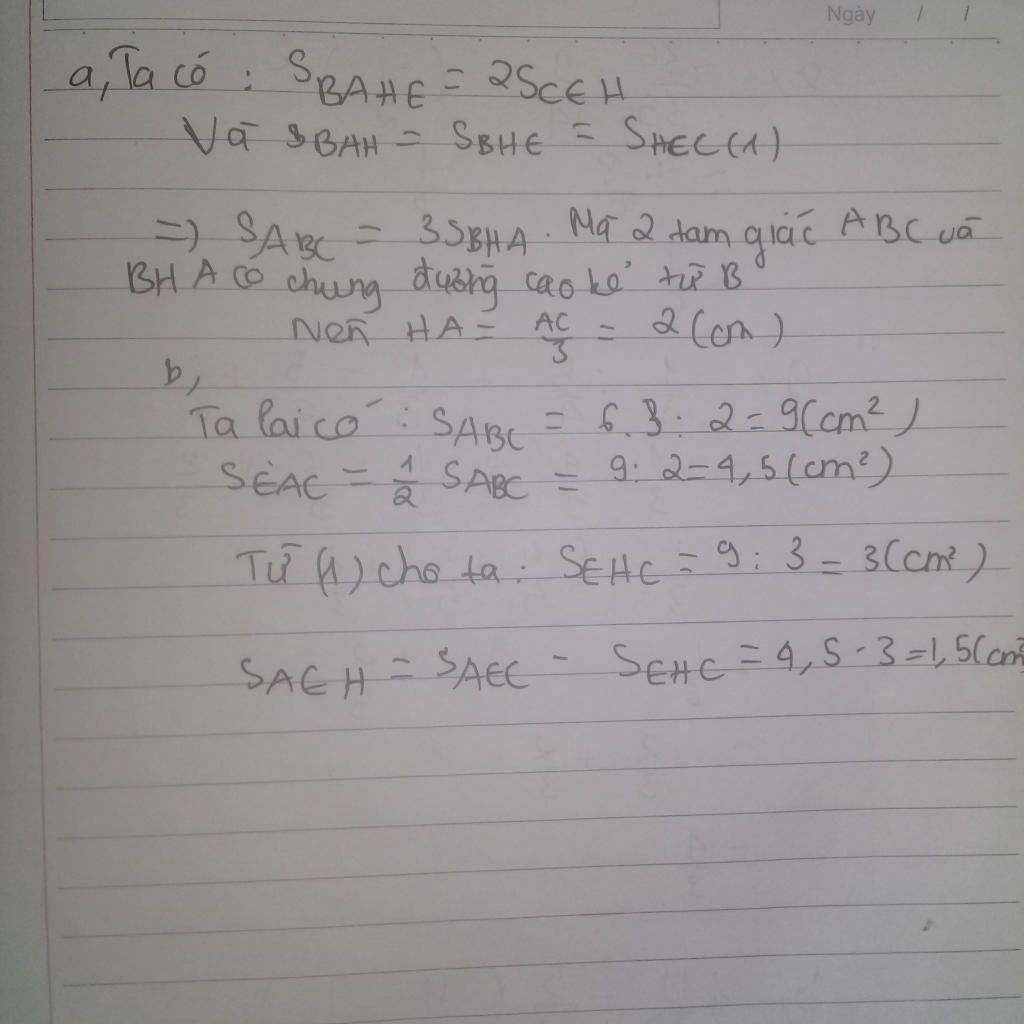 Ngày / /
a, Ta có : S_BAHE = 2S_CEH
Và S_BAH = S_BHE = S_HEC (1)
=> S_ABC = 3S_BHA. Mà 2 tam giác ABC và
BHA có chung đường cao kẻ từ B
Nên HA = AC/3 = 2 (cm)
b,
Ta lại có : S_ABC = 6.3 : 2 = 9(cm²)
S_EAC = 1/2 S_ABC = 9: 2=4,5(cm²)
Từ (1) cho ta : S_EHC = 9 : 3 = 3(cm²)
S_AEH = S_AEC - S_EHC = 4,5 - 3 =1,5(cm²